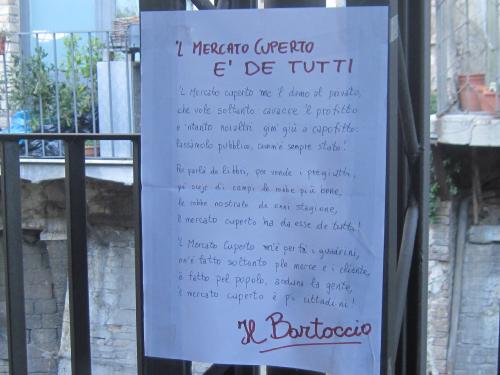 'L MERCATO CUPERTO
E' DE TUTTI
'L Mercato cuperto mo l damo al privato,
che vole soltanto cavacce 'l profitto
e 'ntanto noialtri gim' giù a capofitto:
lassàmolo pubblico, comm'è sempre stato!
Pe parlà de libbri, per vende i presciutti,
pe de campi le robbe più bone,
le robbe nostrate de ogni stagione,
'l mercato cuperto ha da esse de tutti!
'L Mercato Cuperto n'n'è per fà i quadrini,
on'è fatto soltanto ple merce e i cliente,
è fatto pel popolo, araduna la gente,
'l mercato cuperto è pi cittadini!
Il Bartoccio